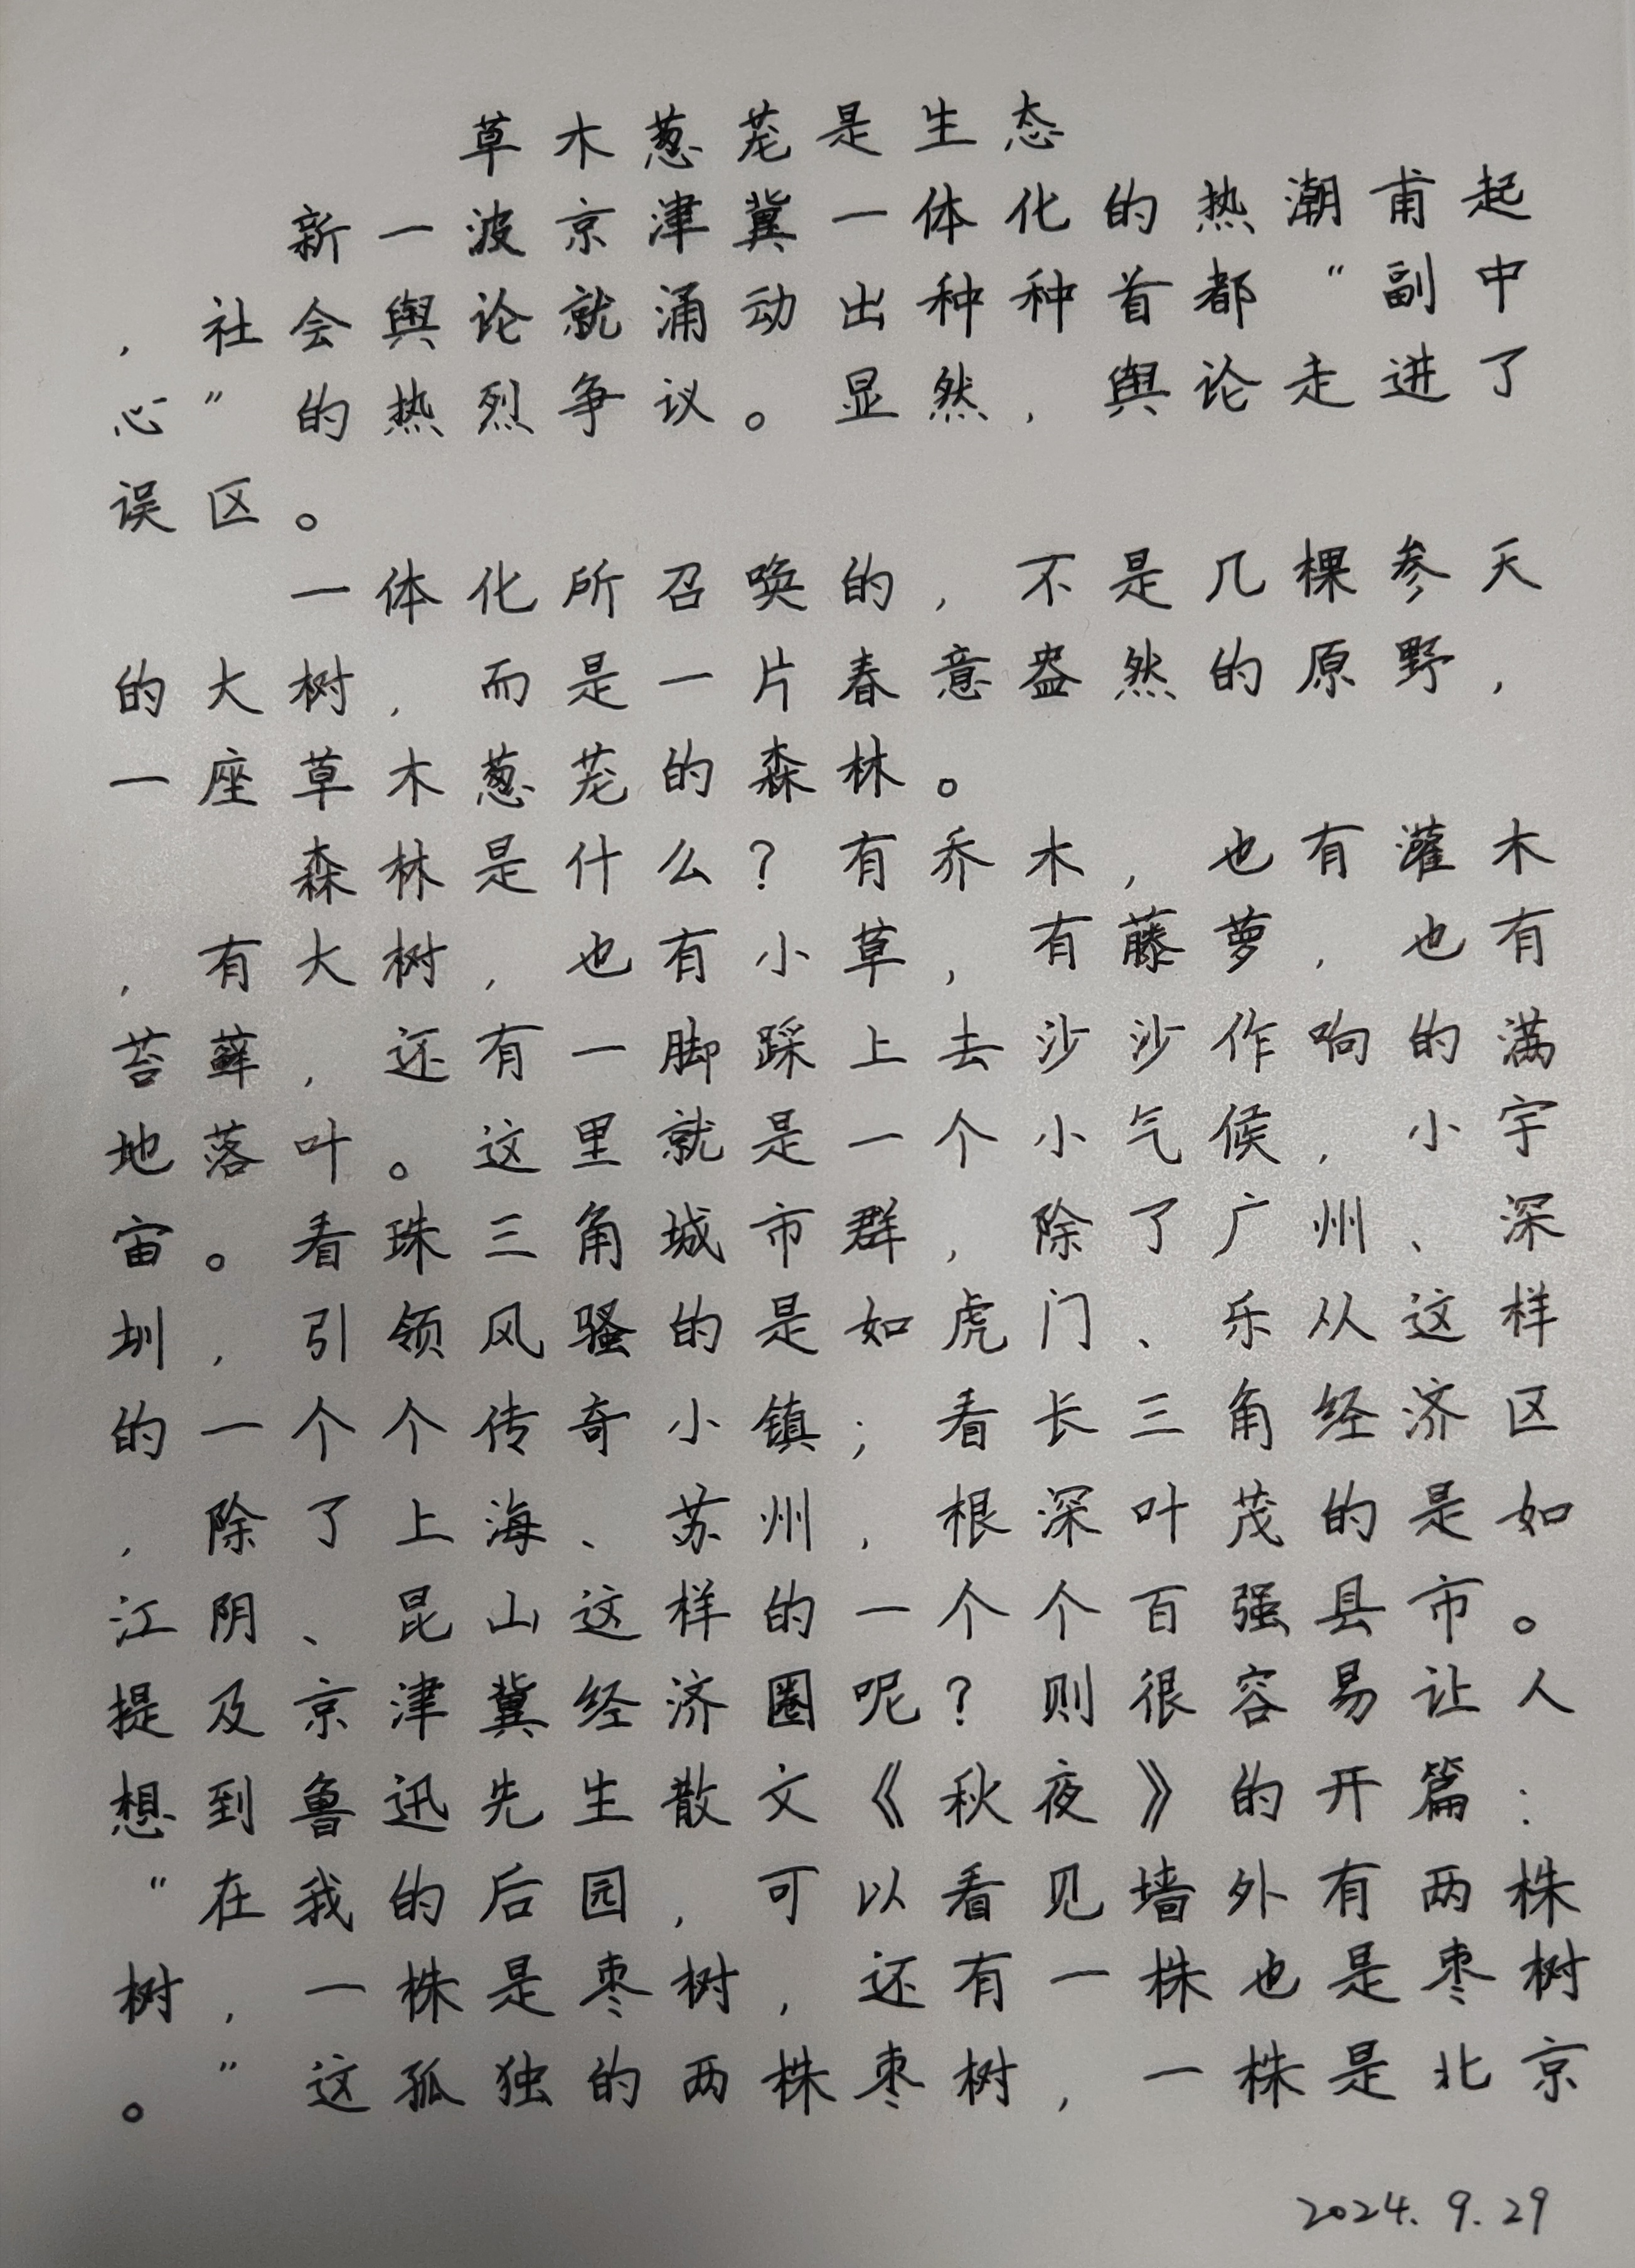 草木葱茏是生态
新一波京津冀一体化的热潮甫起
，社会舆论就涌动出种种首都“副中
心”的热烈争议。显然，舆论走进了
误区。
一体化所召唤的，不是几棵参天
的大树，而是一片春意盎然的原野，
一座草木葱茏的森林。
森林是什么？有乔木，也有灌木
，有大树，也有小草，有藤萝，也有
苔藓，还有一脚踩上去沙沙作响的满
地落叶。这里就是一个小气候，小宇
宙。看珠三角城市群，除了广州、深
圳，引领风骚的是如虎门、乐从这样
的一个个传奇小镇；看长三角经济区
，除了上海、苏州，根深叶茂的是如
江阴、昆山这样的一个个百强县市。
提及京津冀经济圈呢？则很容易让人
想到鲁迅先生散文《秋夜》的开篇：
“在我的后园，可以看见墙外有两株
树，一株是枣树，还有一株也是枣树
。”这孤独的两株枣树，一株是北京
2024.9.29